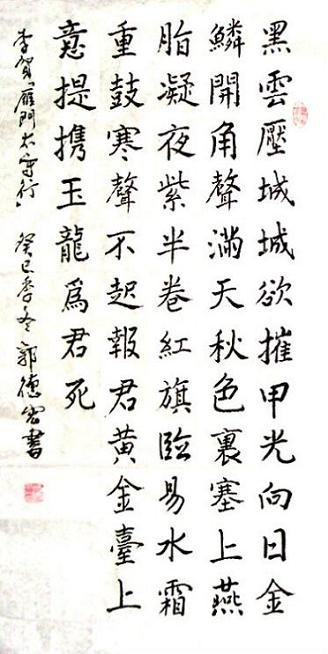 黑雲壓城城欲摧甲光向日金
鱗開角聲滿天秋色裏塞上燕
脂凝夜紫半卷紅旗臨易水霜
重鼓寒聲不起報君黃金臺上
意提携玉龍爲君死
李賀雁門太守行 癸巳季冬郭德宏書